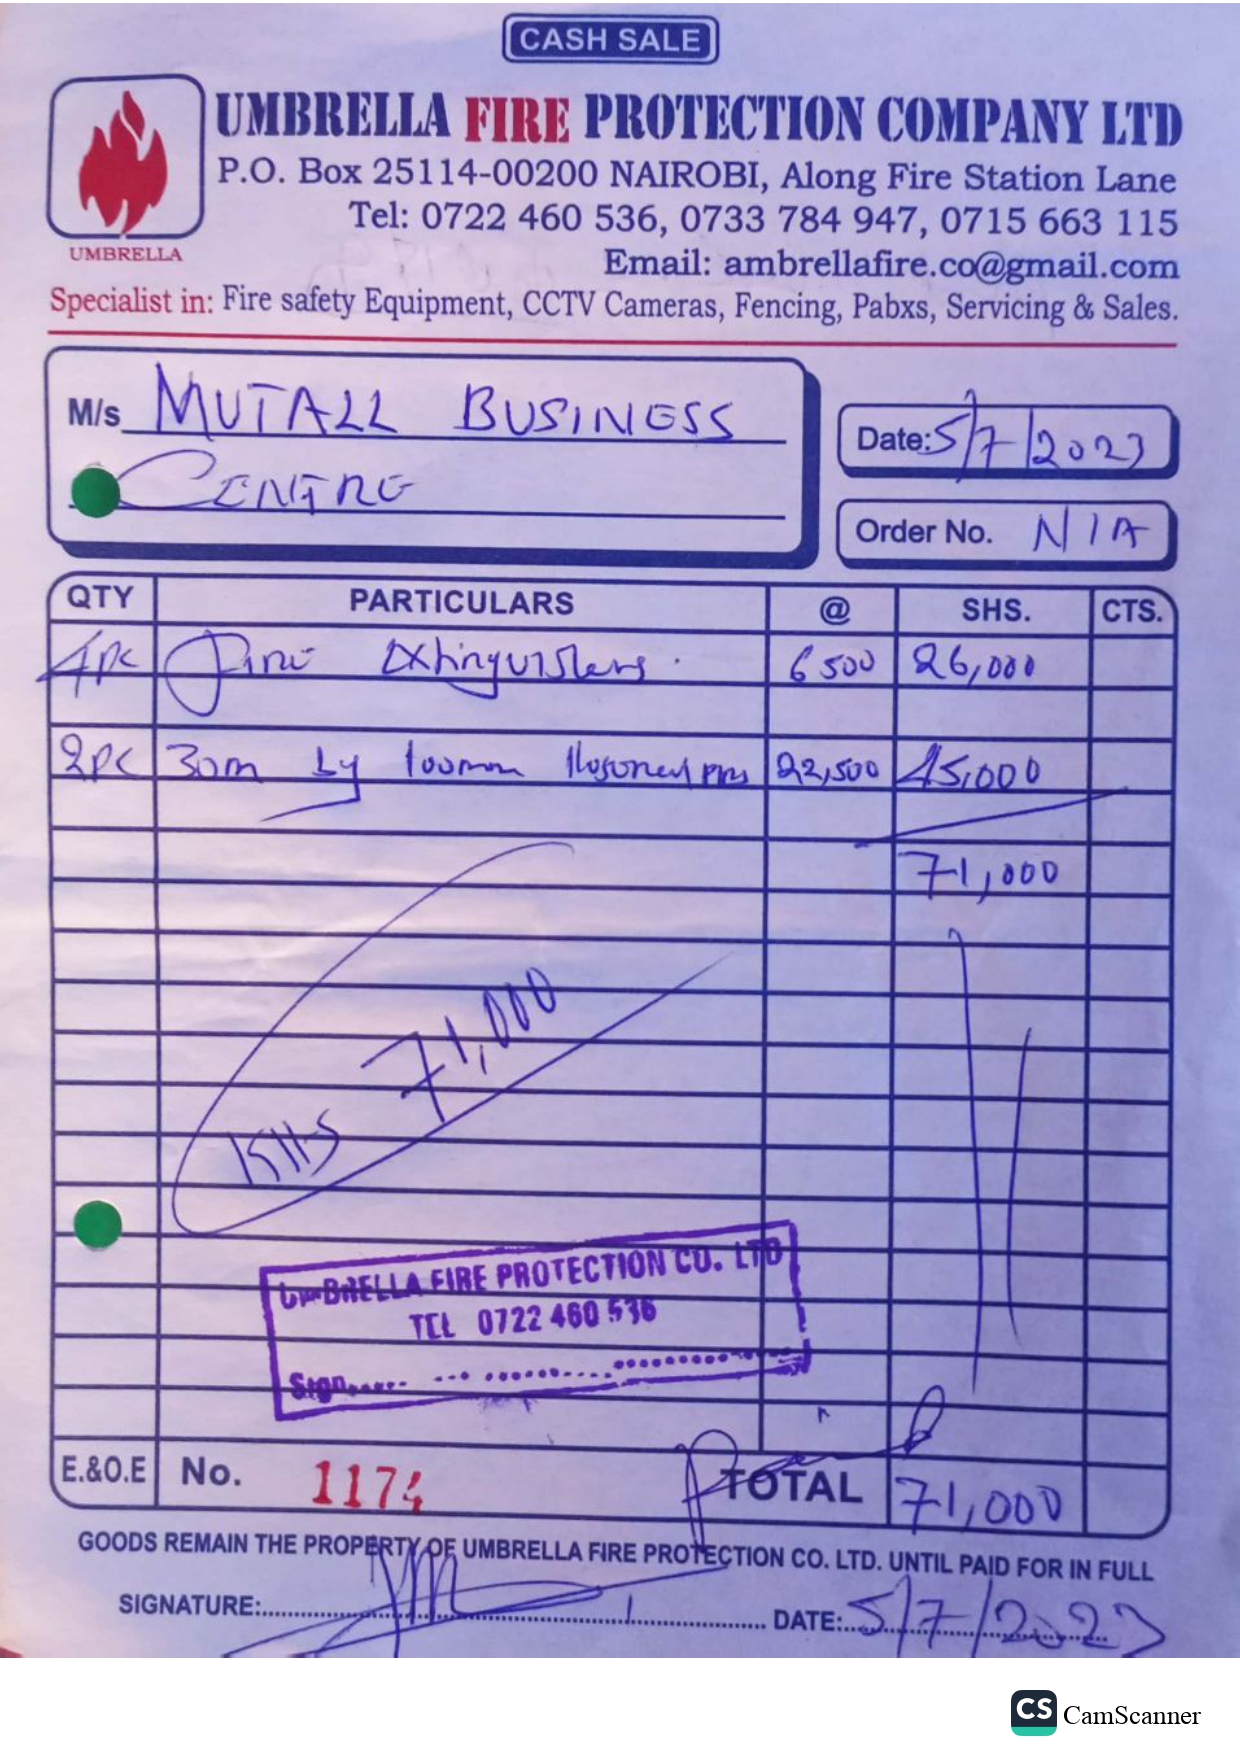 CASH SALE
UMBRELLA FIRE PROTECTION COMPANY LTD
P.O. Box 25114-00200 NAIROBI, Along Fire Station Lane
Tel: 0722 460 536, 0733 784 947, 0715 663 115
UMBRELLA
Email: ambrellafire.co@gmail.com
Specialist in: Fire safety Equipment, CCTV Cameras, Fencing, Pabxs, Servicing & Sales.
M/s MUTALL BUSINESS
CENTRE
Date: 5/7/2023
Order No. N/A
QTY PARTICULARS @ SHS. CTS.
4pc Fire Extinguishers. 6500 26,000
2pc 30m by 100mm 22,500 45,000
71,000
KHS 71,000
UMBRELLA FIRE PROTECTION CO. LTD
TEL 0722 460 536
Sign
E.&O.E No. 1174 TOTAL 71,000
GOODS REMAIN THE PROPERTY OF UMBRELLA FIRE PROTECTION CO. LTD. UNTIL PAID FOR IN FULL
SIGNATURE: DATE: 5/7/2023
CS CamScanner